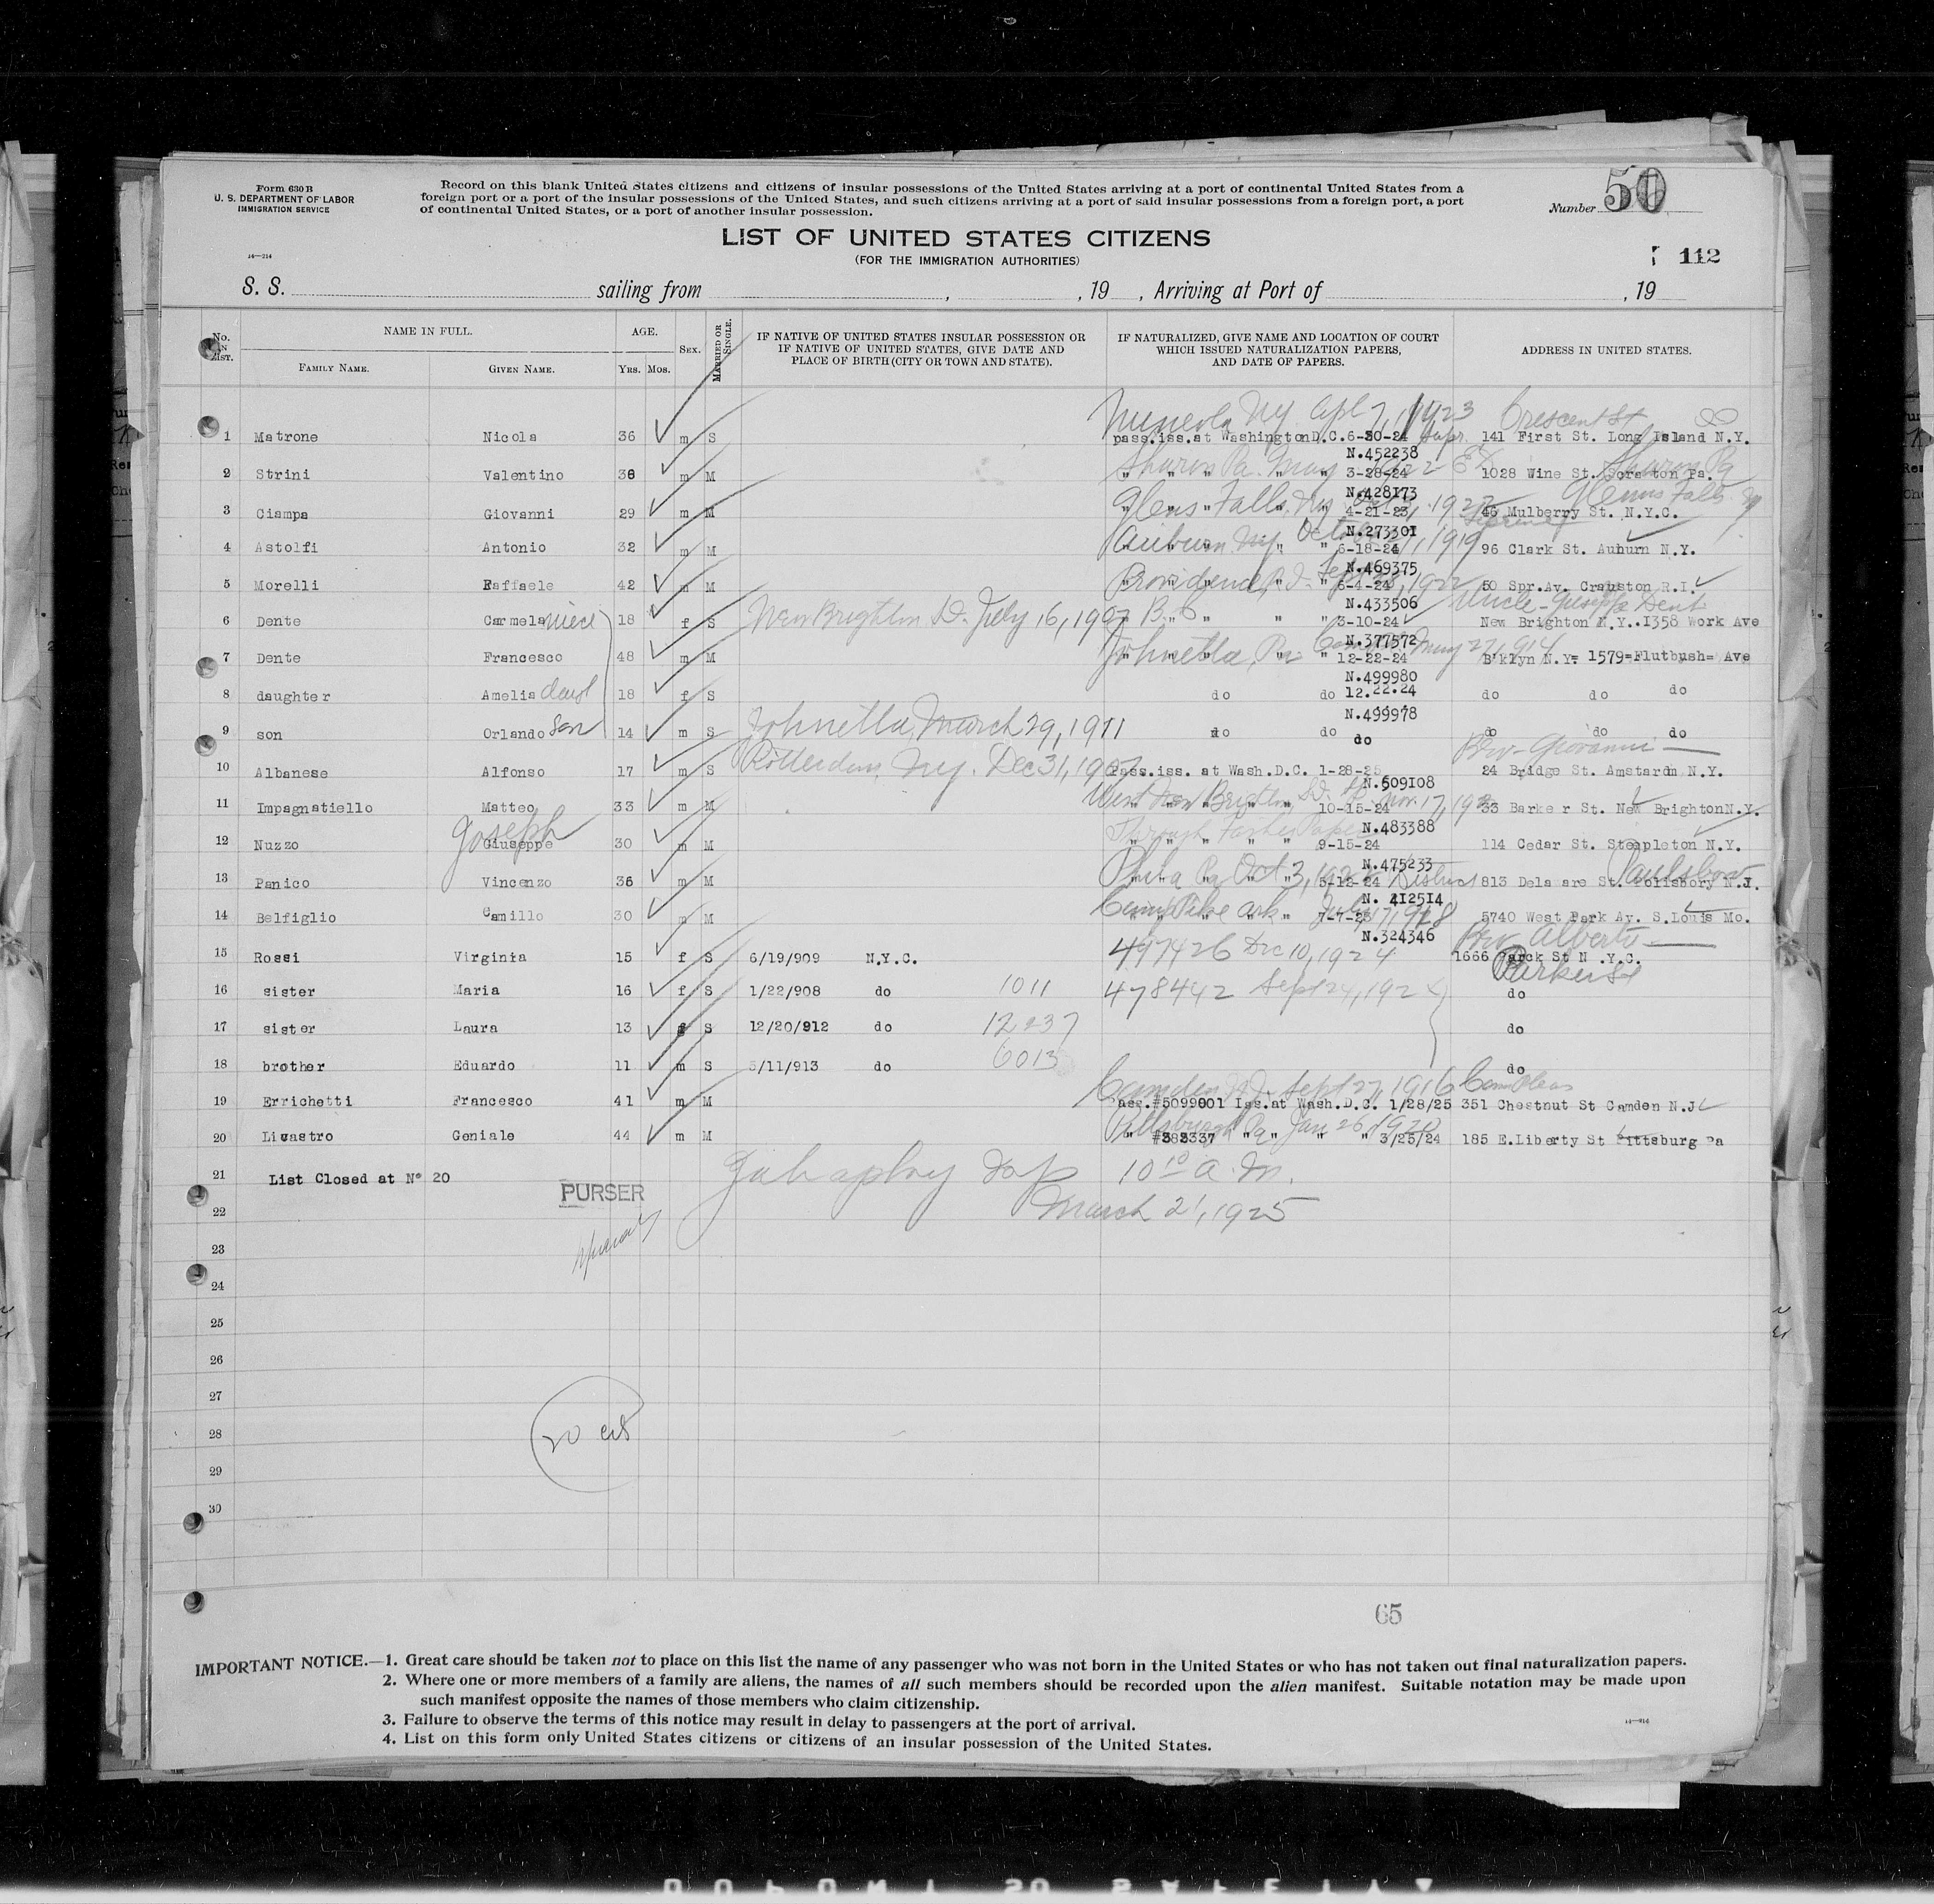 Form 630 B
U. S. DEPARTMENT OF LABOR
IMMIGRATION SERVICE
Record on this blank United States citizens and citizens of insular possessions of the United States arriving at a port of continental United States from a
foreign port or a port of the insular possessions of the United States, and such citizens arriving at a port of said insular possessions from a foreign port, a port
of continental United States, or a port of another insular possession.
Number 50
LIST OF UNITED STATES CITIZENS
(FOR THE IMMIGRATION AUTHORITIES)
14—914
112
S. S. sailing from , , 19 , Arriving at Port of , 19
No. IN LIST. NAME IN FULL. AGE. SEX. MARRIED OR SINGLE. IF NATIVE OF UNITED STATES INSULAR POSSESSION OR IF NATIVE OF UNITED STATES, GIVE DATE AND PLACE OF BIRTH (CITY OR TOWN AND STATE). IF NATURALIZED, GIVE NAME AND LOCATION OF COURT WHICH ISSUED NATURALIZATION PAPERS, AND DATE OF PAPERS. ADDRESS IN UNITED STATES.
FAMILY NAME. GIVEN NAME. YRS. MOS.
Mineola N.Y. Apl 7, 1923 Crescent St
1 Matrone Nicola 36 m S pass.iss.at Washington D.C. 6-30-24 141 First St. Long Island N.Y.
N.452238
Sharon Pa. May Sharon Pa
2 Strini Valentino 36 m M " " " " 3-28-24 1028 Wine St. Scranton Pa.
N.428173
Glens Falls N.Y. Glenns Falls
3 Ciampa Giovanni 29 m M " " " " 4-21-23 46 Mulberry St. N.Y.C.
N.273301
Auburn N.Y. October 1919
4 Astolfi Antonio 32 m M " " " " 6-18-24 96 Clark St. Auburn N.Y.
N.469375
Providence R.I. Sept 1922
5 Morelli Raffaele 42 m M " " " " 6-4-24 50 Spr.Av. Cranston R.I.
N.433506
New Brighton S.I. July 16, 1907 Uncle - Giuseppe Dente
6 Dente Carmela niece 18 f S " " " " 3-10-24 New Brighton N.Y..1358 Work Ave
N.377572
Johnetta, Pa May 27, 1914
7 Dente Francesco 48 m M " " " " 12-22-24 B'klyn N.Y= 1579=Flutbush= Ave
N.499980
8 daughter Amelia daug 18 f S do do 12.22.24 do do do
N.499978
9 son Orlando son 14 m S Johnetta, March 29, 1911 do do do do do do
Bro - Giovanni
10 Albanese Alfonso 17 m S Rotterdam, N.Y. Dec 31, 1907 Pass.iss. at Wash.D.C. 1-28-25 24 Bridge St. Amstardm N.Y.
N.509108
West New Brighton, Nov. 17,
11 Impagnatiello Matteo 33 m M " " " " 10-15-24 33 Barke r St. New BrightonN.Y.
N.483388
Joseph Through Father Papers
12 Nuzzo Giuseppe 30 m M " " " " 9-15-24 114 Cedar St. Steapleton N.Y.
N.475233
Phila Pa Oct 3, Paulsboro
13 Panico Vincenzo 36 m M " " " " 5-12-24 813 Dela are St. Polisbory N.J.
N. 412514
Camp Pike Ark. July 17, 1918
14 Belfiglio Camillo 30 m M " " " " 7-7-23 5740 West Park Av. S.Louis Mo.
N.324346
Bro Alberto
15 Rossi Virginia 15 f S 6/19/909 N.Y.C. 497426 Dec 10, 1924 1666 Parck St N .Y.C.
Parker St
16 sister Maria 16 f S 1/22/908 do 1011 478442 Sept 24, 192 do
17 sister Laura 13 f S 12/20/912 do 12237 do
18 brother Eduardo 11 m S 5/11/913 do 6013 do
Camden N.J. Sept 27, 1916 Com Pleas
19 Errichetti Francesco 41 m M Pass.#5099001 Iss.at Wash.D.C. 1/28/25 351 Chestnut St Camden N.J
Pittsburgh Pa Jan 26, 1920
20 Livastro Geniale 44 m M " #383337 " " " " 3/25/24 185 E.Liberty St Pittsburg Pa
21 List Closed at N° 20 10 10 A.M.
PURSER
22 March 21, 1925
23
24
25
26
27
28 20 cits
29
30
65
IMPORTANT NOTICE.—1. Great care should be taken not to place on this list the name of any passenger who was not born in the United States or who has not taken out final naturalization papers.
2. Where one or more members of a family are aliens, the names of all such members should be recorded upon the alien manifest. Suitable notation may be made upon
such manifest opposite the names of those members who claim citizenship.
3. Failure to observe the terms of this notice may result in delay to passengers at the port of arrival.
14—914
4. List on this form only United States citizens or citizens of an insular possession of the United States.